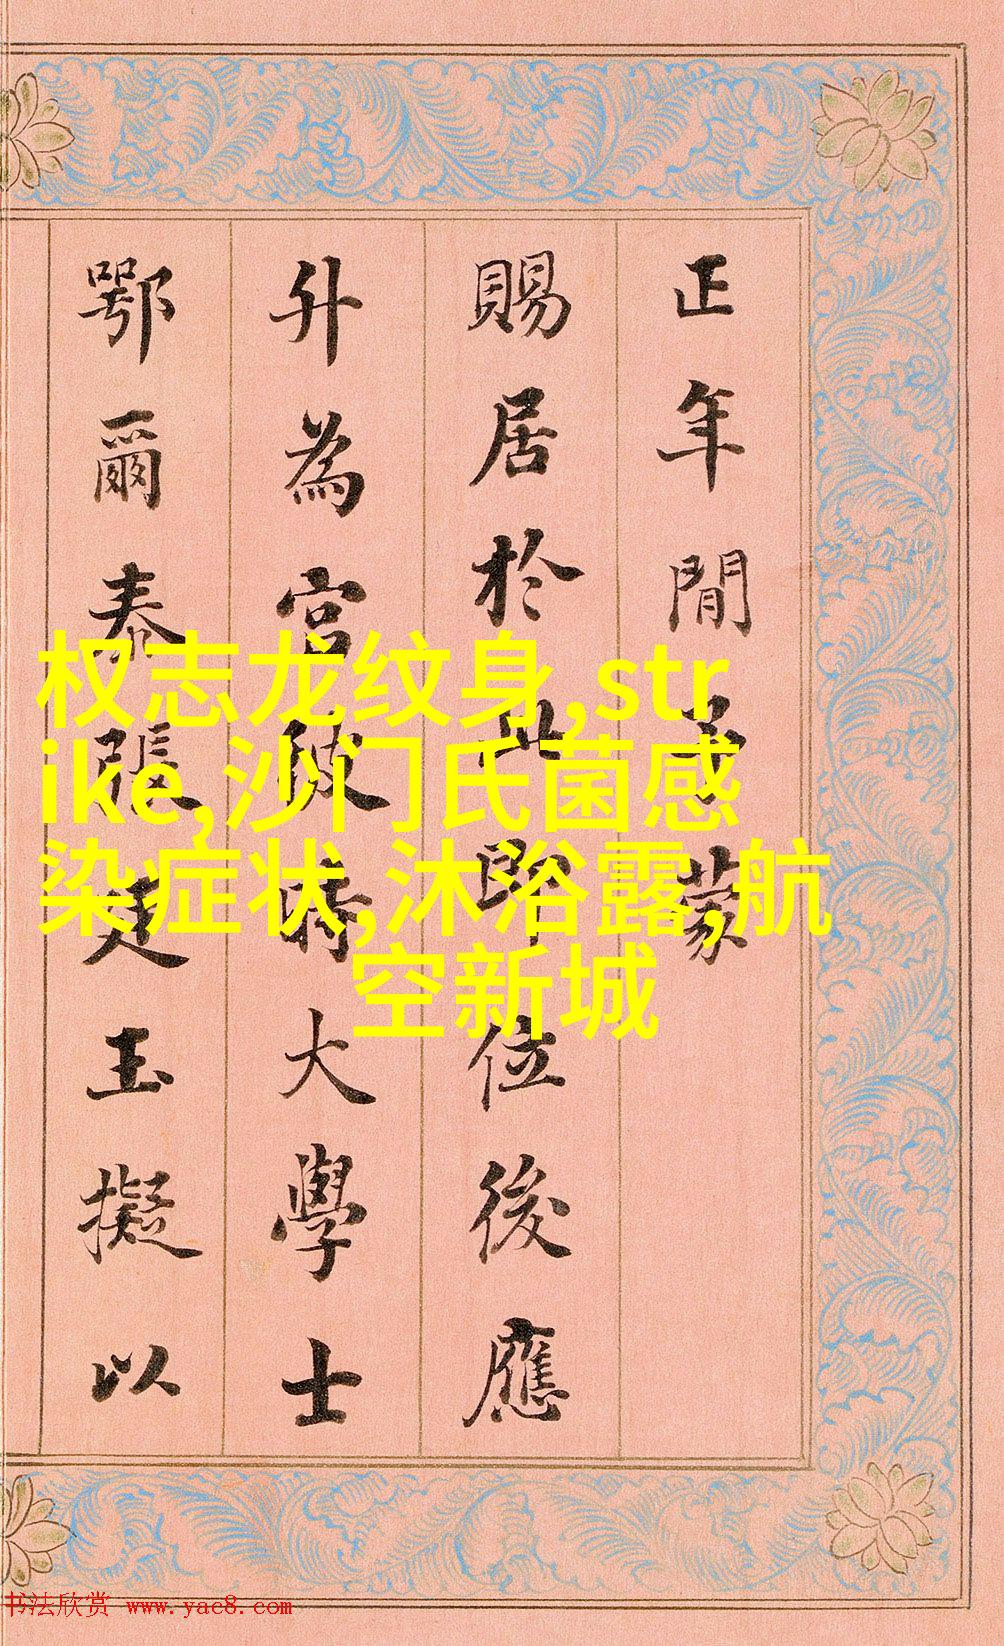 正年間予蒙
賜居於此即位後應
升為宮彼時大學士
鄂爾泰張廷玉擬以
权志龙纹身,str
ike,沙门氏菌感
染症状,沐浴露,航
空新城
书法欣赏 www.yac8.com